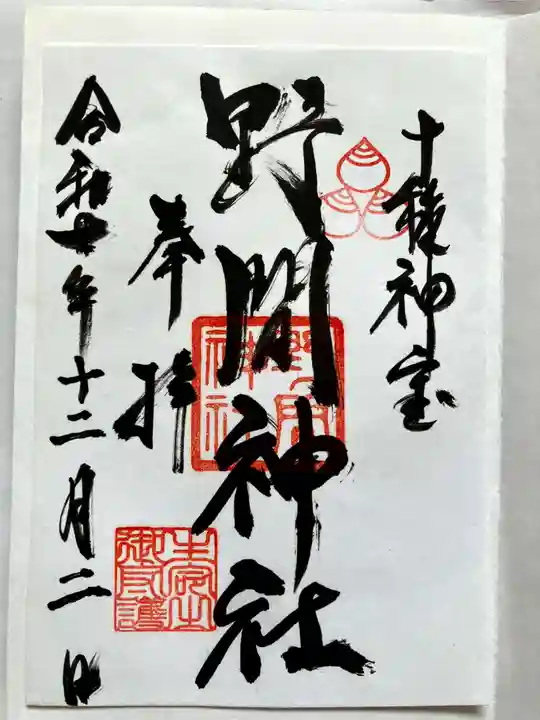 十種神宝
野間神社
野間神社
奉拝
令和七年十二月二日
御守護